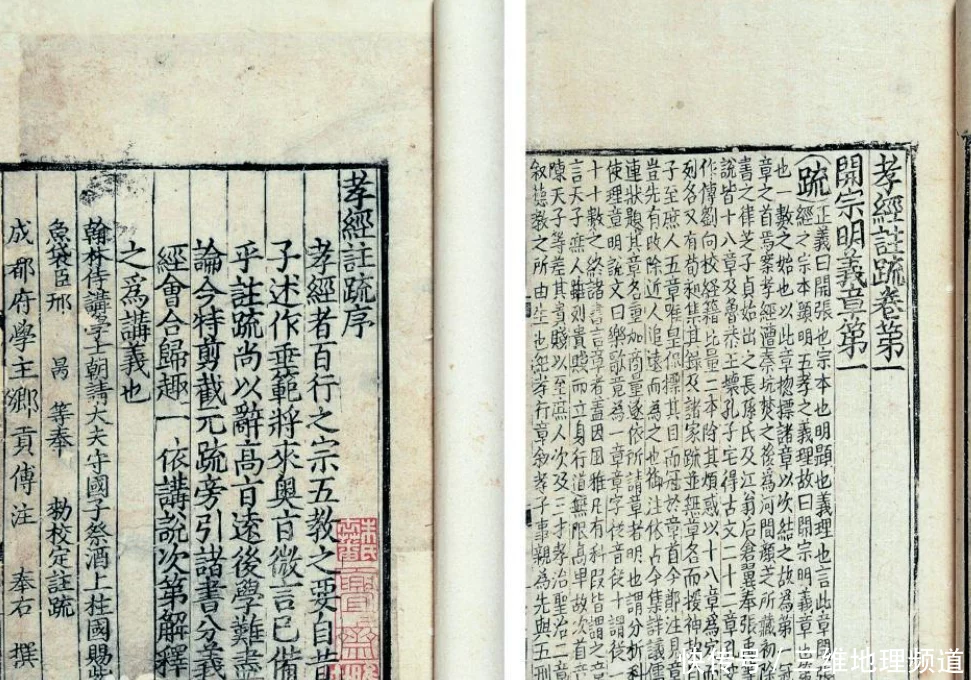 孝經註疏序
孝經者百行之宗五教之要自昔
子述作垂範將來奧旨微言已備
乎註疏尚以辭高旨遠後學難盡
論今特剪截元疏旁引諸書分義
經會合歸趣一依講說次第解釋
之爲講義也
翰林侍講學士朝請大夫守國子祭酒上柱國賜紫
魚袋臣邢昺等奉 勅校定註疏
成都府學主鄉貢傅注 奉右 撰
孝經註疏卷第一
開宗明義章第一
疏 正義曰開張也宗本也明顯也義理也言此章開
經之宗本顯明五孝之義理故曰開宗明義章也
也一數之始也以此章揔標諸章以次結之故為第一
章之首焉案孝經遭秦坑焚之後為河間顏芝所藏初除
書之律芝子貞始出之長孫氏及江翁后倉翼奉張禹
說皆十八章及魯恭王壞孔子宅得古文二十二章孔
作傳劉向校經籍比量二本除其煩惑以十八章為定
列名又有荀昶集其錄及諸家疏並無章名而援神契自
子至庶人五章唯皇侃標其目而冠於章首今鄭注見章
豈先有改除近人追遠而為之也御注依古今集詳議儒
連狀題其章名重加商量遂依所請章者明也謂分析科
使理章明說文曰樂歌竟為一章章字從音從十謂從一
十十數之終諸書言章者蓋因風雅凡有科段皆謂之章
言天子庶人雖列貴賤而立身行道無限高卑故次首章
陳天子等差其貴賤以至庶人次及三才孝治聖治三章
敘德教之所由生也紀孝行章敘孝子事親為先與五刑
快传号 / 三维地理频道